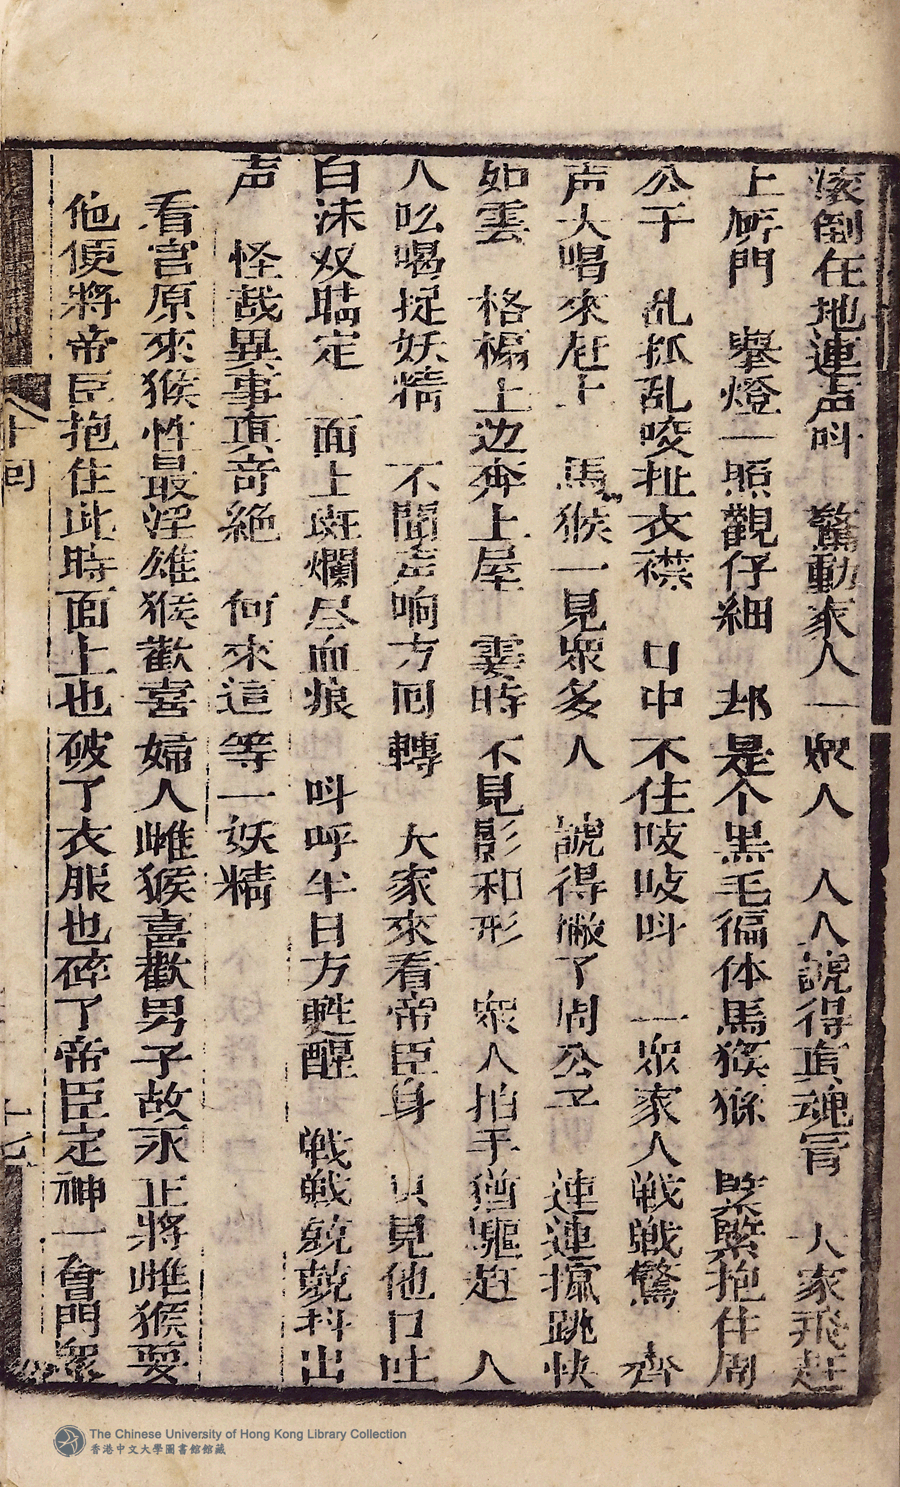 滚倒在地連声呌　驚動家人一眾人　人人諕得真魂冐　大家飛赶
上厛門　舉燈一照觀仔細　却是个黑毛徧体馬猴猻　緊緊抱住周
公子　乱抓乱咬扯衣襟　口中不住吱吱呌　一眾家人戦戦驚　齊
声大喝來赶上　馬猴一見眾多人　諕得撇了周公子　連連攛跳快
如雲　格槅上边奔上屋　霎時不見影和形　眾人拍手猶驅赶　人
人吆喝捉妖精　不聞声响方囘轉　大家來看帝臣身　只見他口吐
白沫双睛定　面上斑爛尽血痕　呌呼半日方甦醒　戦戦兢兢抖出
声　怪哉異事真奇絶　何來這等一妖精
看官原來猴性最淫雄猴歡喜婦人雌猴喜歡男子故永正將雌猴耍
他便將帝臣抱住此時面上也破了衣服也碎了帝臣定神一會門眾
十囘
The Chinese University of Hong Kong Library Collection
香港中文大學圖書館館藏